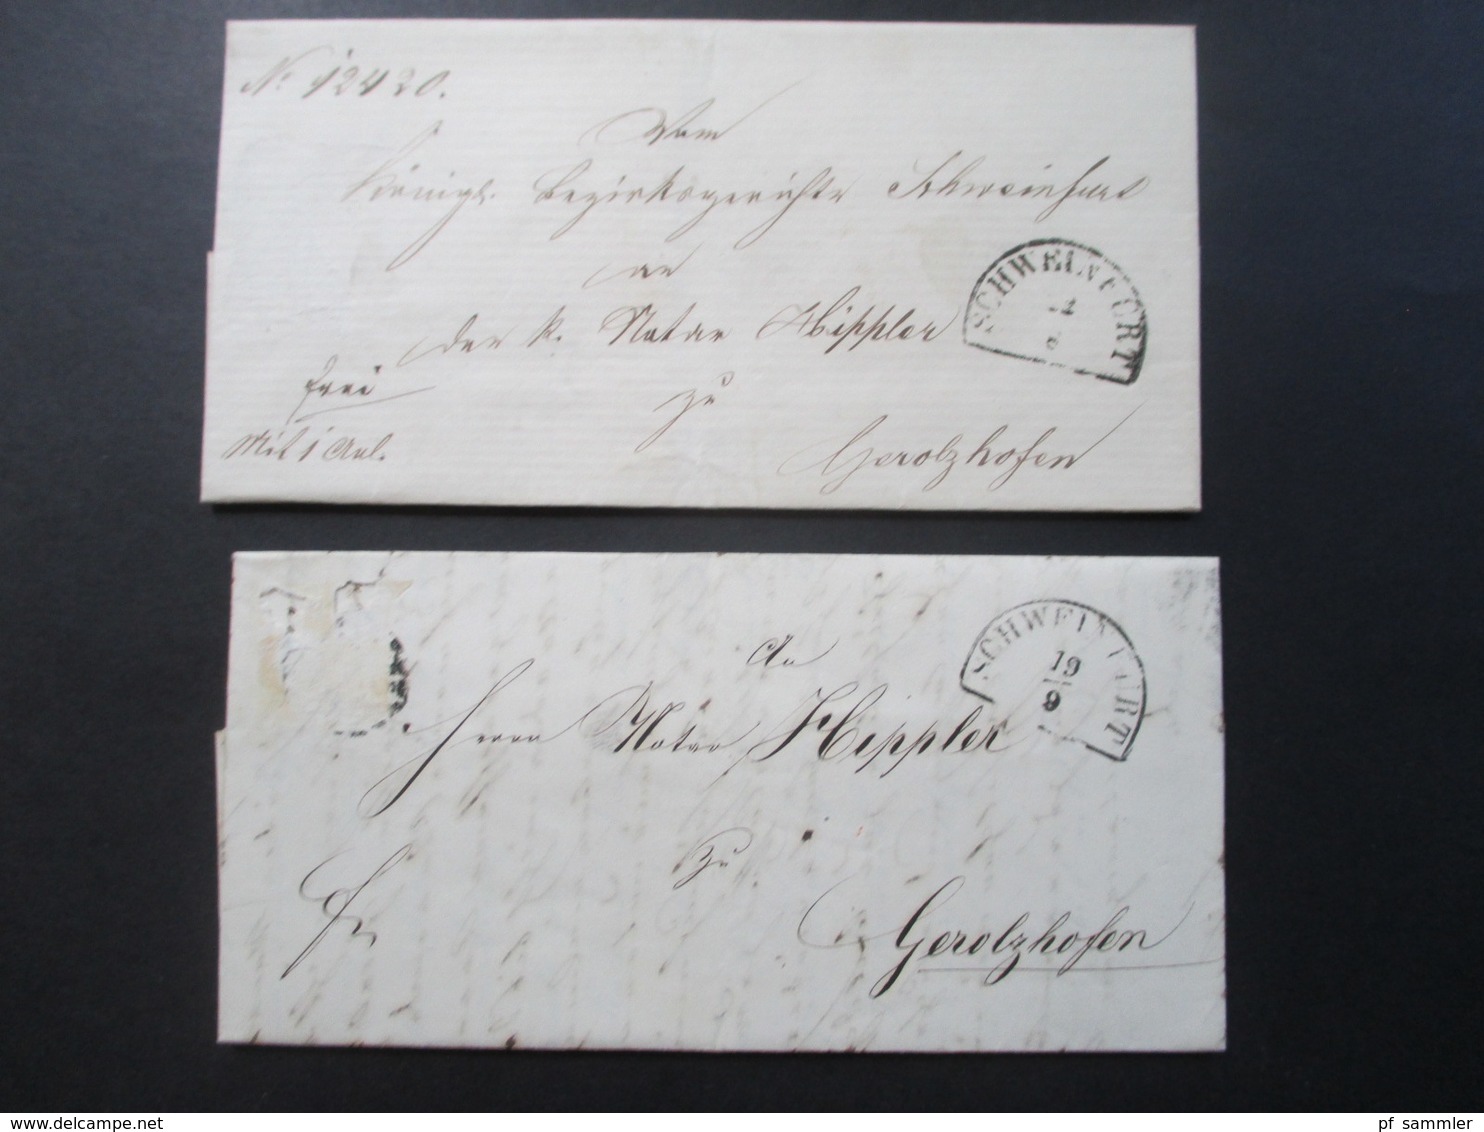 No 12420.
Vom
Königl. Bezirksgerichte Schweinfurt
an
den k. Notar Hippler
zu
Gerolzhofen
frei
Mit 1 Anl.
SCHWEINFURT
An
Herrn Notar Hippler
zu
Gerolzhofen
Fr
SCHWEINFURT
19
9
www.delcampe.net
pf_sammler